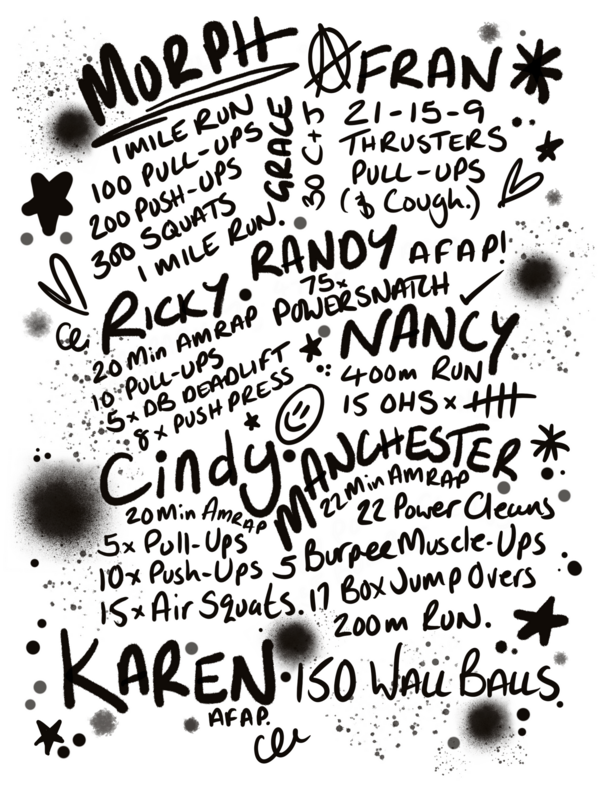 MURPH
1 MILE RUN
100 PULL-UPS
200 PUSH-UPS
300 SQUATS
1 MILE RUN.
GRACE
30 C+J
FRAN
21-15-9
THRUSTERS
PULL-UPS
($ Cough.)
RANDY AFAP!
75x
POWERSNATCH
RICKY.
20 Min AMRAP
10 PULL-UPS
5x DB DEADLIFT
8x PUSH PRESS
NANCY
400m RUN
15 OHS x
Cindy.
20 Min AMRAP
5x Pull-Ups
10x Push-Ups
15x Air Squats.
MANCHESTER
22 Min AMRAP
22 Power Cleans
5 Burpee Muscle-Ups
17 Box Jump Overs
200m RUN.
KAREN · 150 WALL BALLS
AFAP.